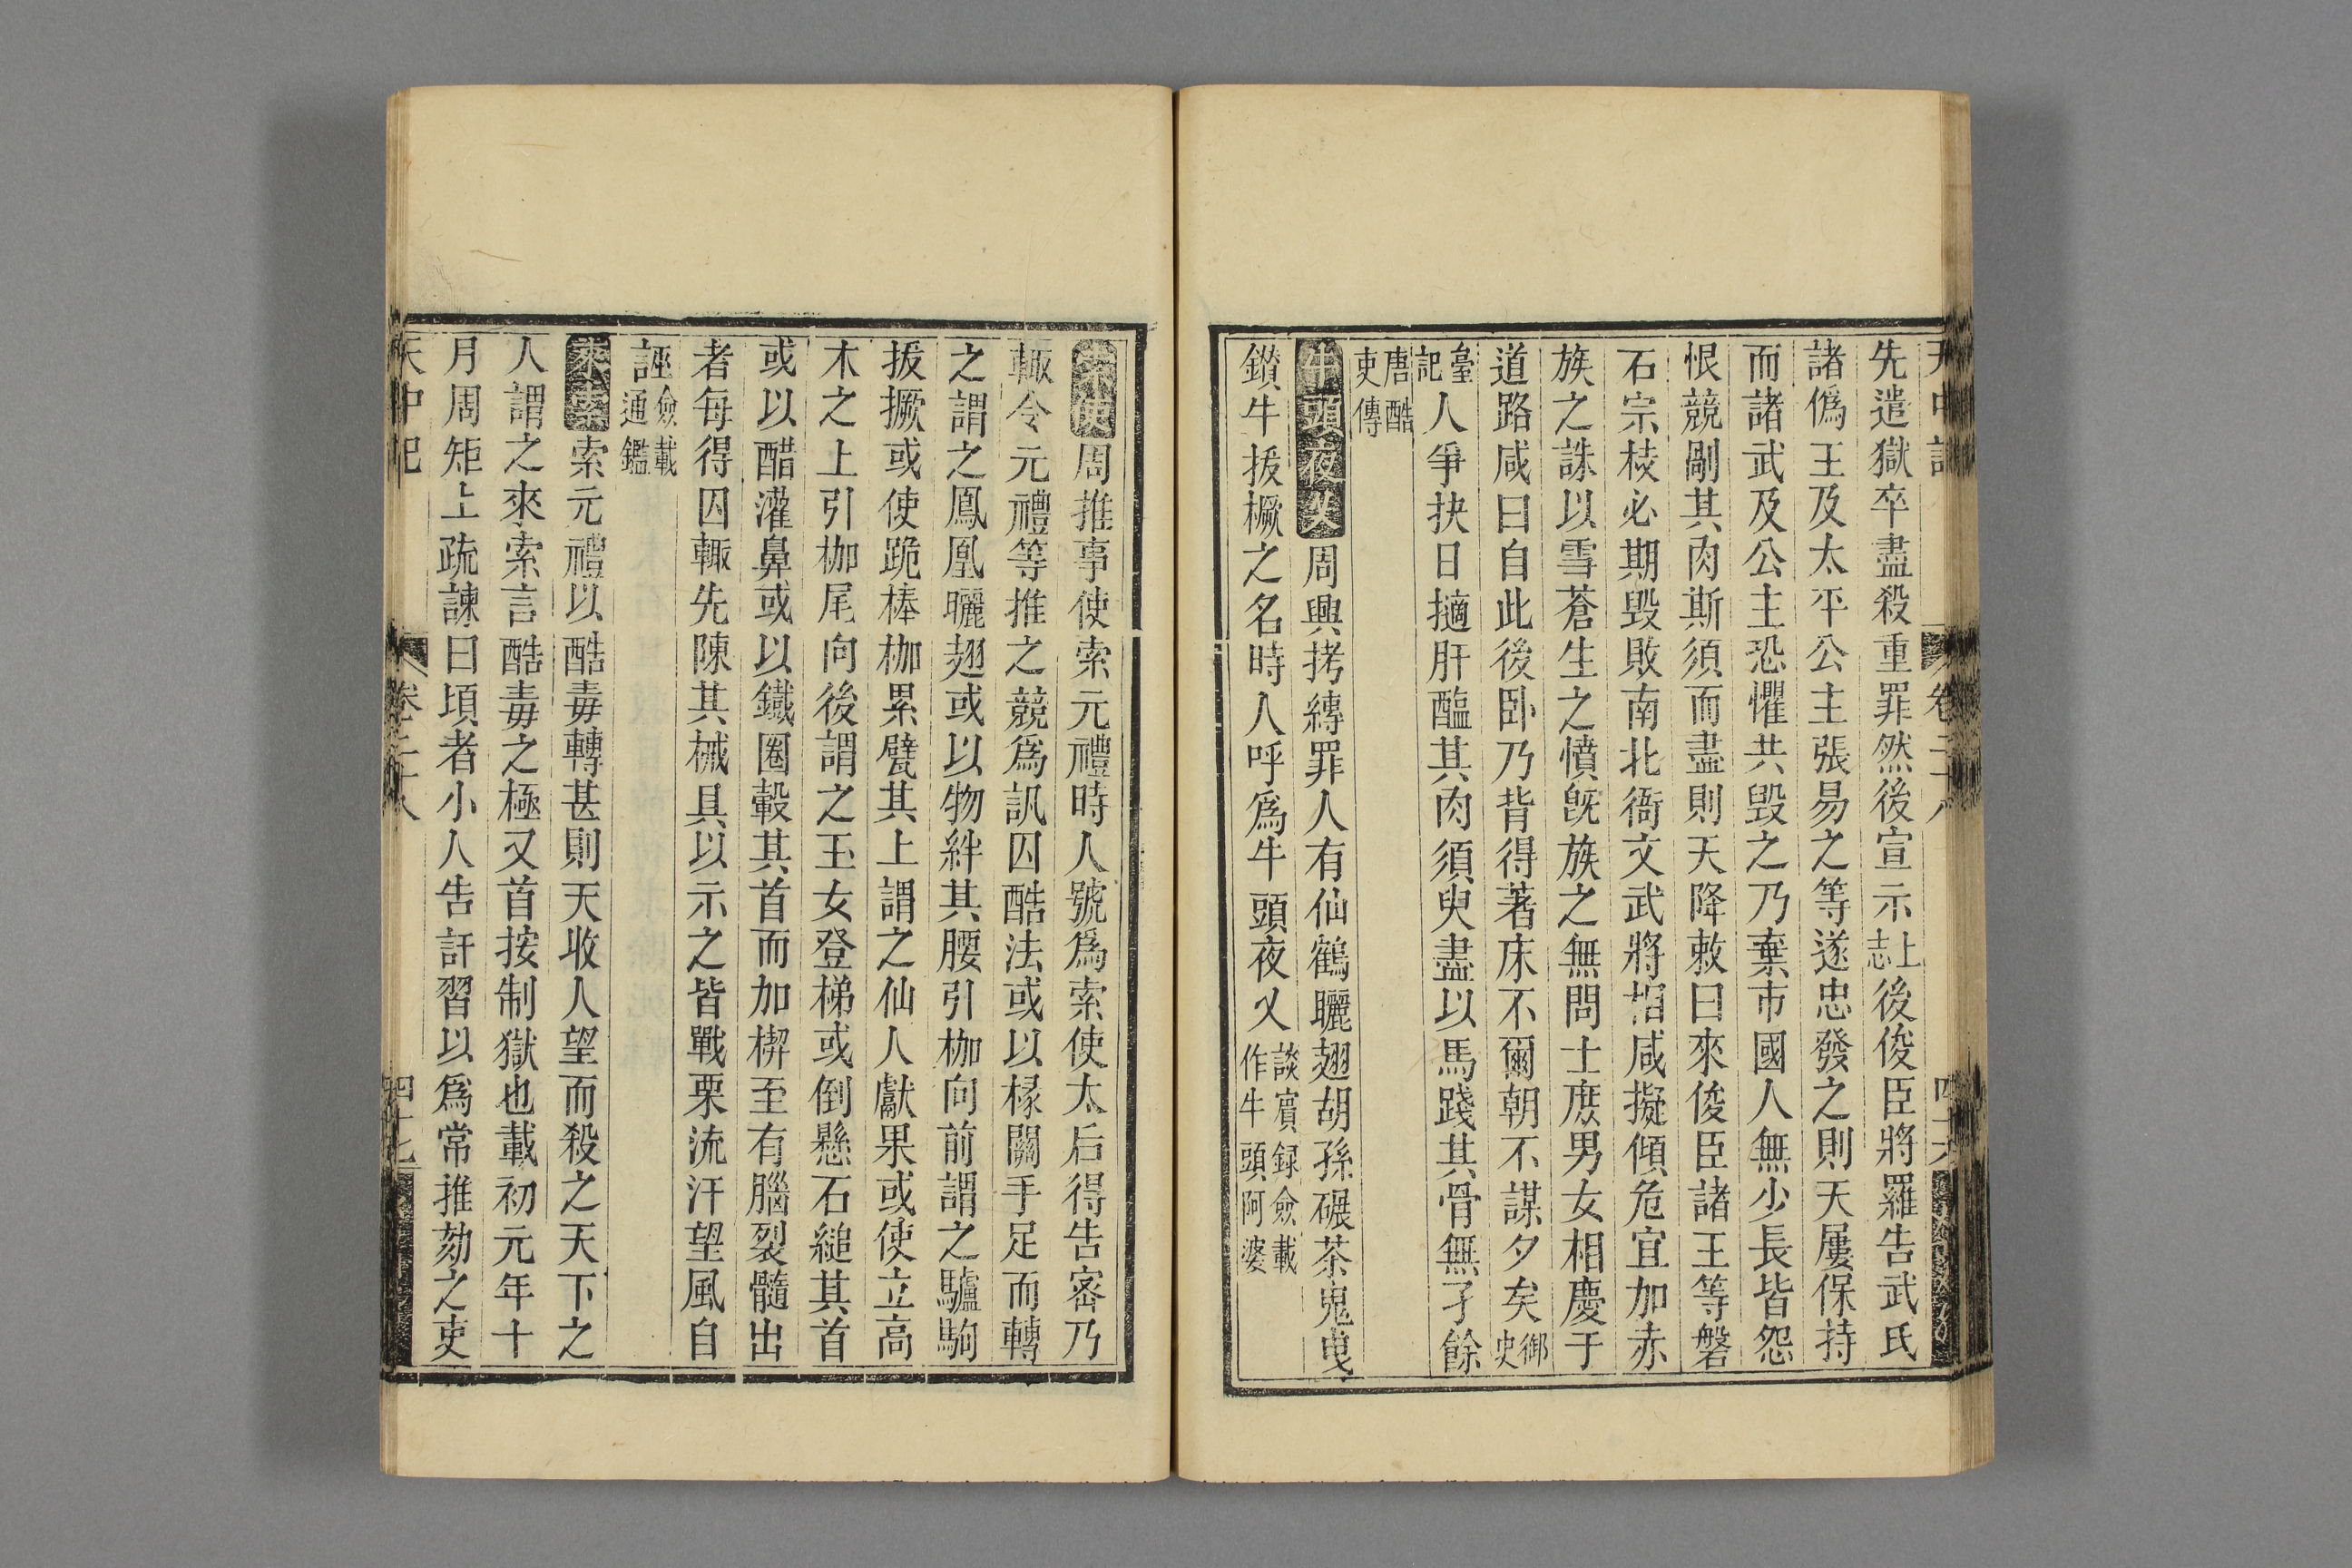 天中記 卷二十八 四十六
先遣獄卒盡殺重罪然後宣示上志後俊臣將羅告武氏
諸僞王及太平公主張易之等遂忠發之則天屢保持
而諸武及公主恐懼共毀之乃棄市國人無少長皆怨
恨競剮其肉斯須而盡則天降敕曰來俊臣諸王等磐
石宗枝必期毀敗南北衙文武將相咸擬傾危宜加赤
族之誅以雪蒼生之憤旣族之無問士庶男女相慶于
道路咸曰自此後卧乃背得著床不爾朝不謀夕矣御史
臺記人爭抉目擿肝醢其肉須臾盡以馬踐其骨無孑餘
唐酷吏傳
牛頭夜乂周興拷縳罪人有仙鶴曬翅胡孫碾茶鬼曳
鑽牛拔橛之名時人呼爲牛頭夜乂談賓録僉載作牛頭阿婆
索使周推事使索元禮時人號爲索使太后得告密乃
輙令元禮等推之競爲訊囚酷法或以椽關手足而轉
之謂之鳳凰曬翅或以物絆其腰引枷向前謂之驢駒
拔撅或使跪棒枷累甓其上謂之仙人獻果或使立高
木之上引枷尾向後謂之玉女登梯或倒懸石縋其首
或以醋灌鼻或以鐵圈轂其首而加楔至有腦裂髓出
者每得囚輙先陳其械具以示之皆戰栗流汗望風自
誣僉載通鑑
來索索元禮以酷毒轉甚則天收人望而殺之天下之
人謂之來索言酷毒之極又首按制獄也載初元年十
月周矩上疏諫曰頃者小人告訐習以爲常推劾之吏
天中記 卷二十八 四十七